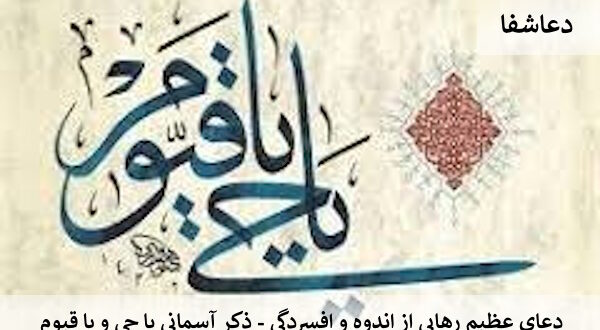 دعاشفا
یا حی
یا قیوم
دعای عظیم رهایی از اندوه و افسردگی - ذکر آسمانی یا حی و یا قیوم